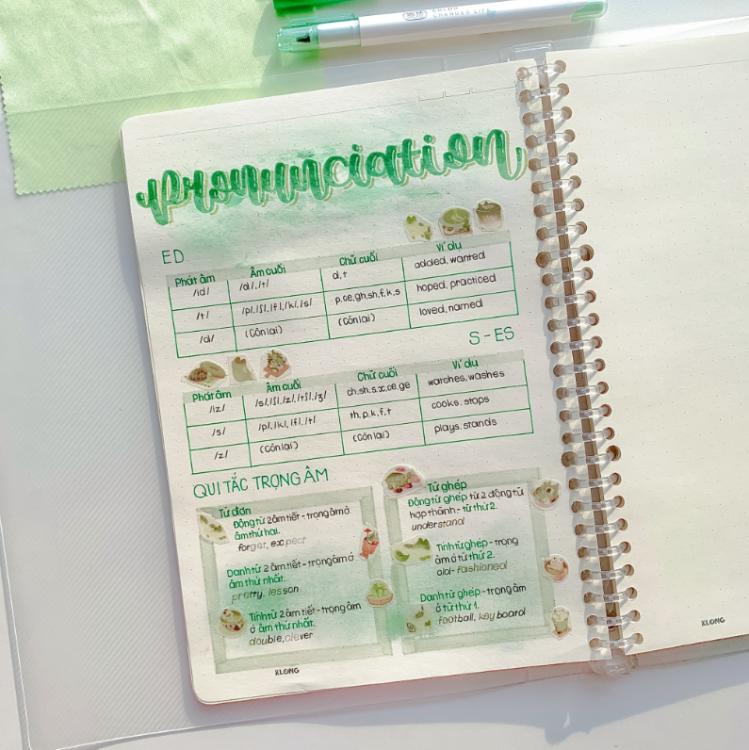 COLOR
CHANGES LIFE
pronunciation
ED
Phát âm Âm cuối Chữ cuối Ví dụ
/id/ /d/, /t/ d, t added, wanted
/t/ /p/, /ʃ/, /f/, /k/, /s/ p, ce, gh, sh, f, k, s hoped, practiced
/d/ (Còn lại) (Còn lại) loved, named
S - ES
Phát âm Âm cuối Chữ cuối Ví dụ
/iz/ /s/, /ʃ/, /z/, /tʃ/, /ʒ/ ch, sh, s, x, ce, ge watches, washes
/s/ /p/, /k/, /f/, /t/ th, p, k, f, t cooks, stops
/z/ (Còn lại) (Còn lại) plays, stands
QUI TẮC TRỌNG ÂM
Từ đơn
Động từ 2 âm tiết - trọng âm ở
âm thứ hai.
forget, expect
Danh từ 2 âm tiết - trọng âm ở
âm thứ nhất.
pretty, lesson
Tính từ 2 âm tiết - trọng âm
ở âm thứ nhất.
double, clever
Từ ghép
Động từ ghép từ 2 động từ
hợp thành - từ thứ 2.
understand
Tính từ ghép - trọng
âm ở từ thứ 2.
old-fashioned
Danh từ ghép - trọng âm
ở từ thứ 1.
football, keyboard
KLONG
KLONG